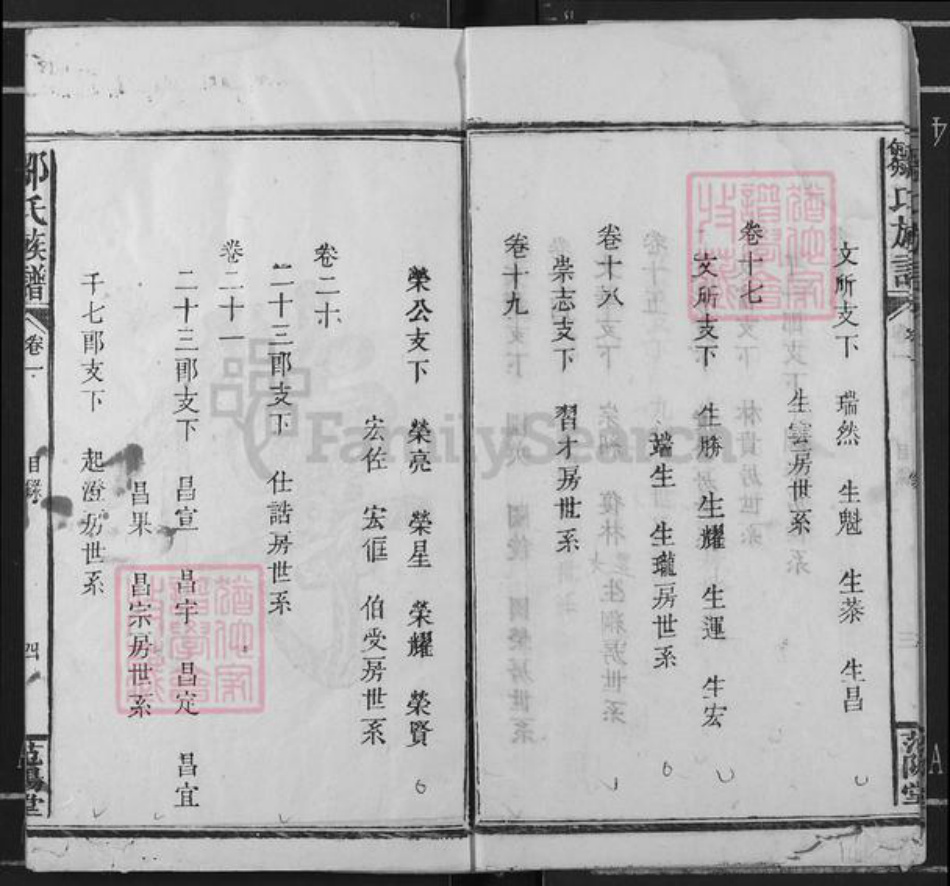 鄒氏族譜
文所支下 瑞然 生魁 生茶 生昌
生雲房世系
卷十七
文所支下 生勝 生耀 生運 生宏
端生 生瓏房世系
卷十八
崇志支下 習才房世系
卷十九
范陽堂
榮公支下 榮亮 榮星 榮耀 榮賢
宏佐 宏偓 伯受房世系
卷二十
二十三郎支下 仕誥房世系
卷二十一
二十三郎支下 昌宣 昌宇 昌定 昌宜
昌果 昌宗房世系
千七郎支下 起澄房世系
鄒氏族譜 卷一 目錄 四 范陽堂
FamilySearch